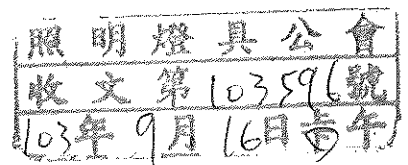 照明燈具公會
收文第103596號
103年9月16日午